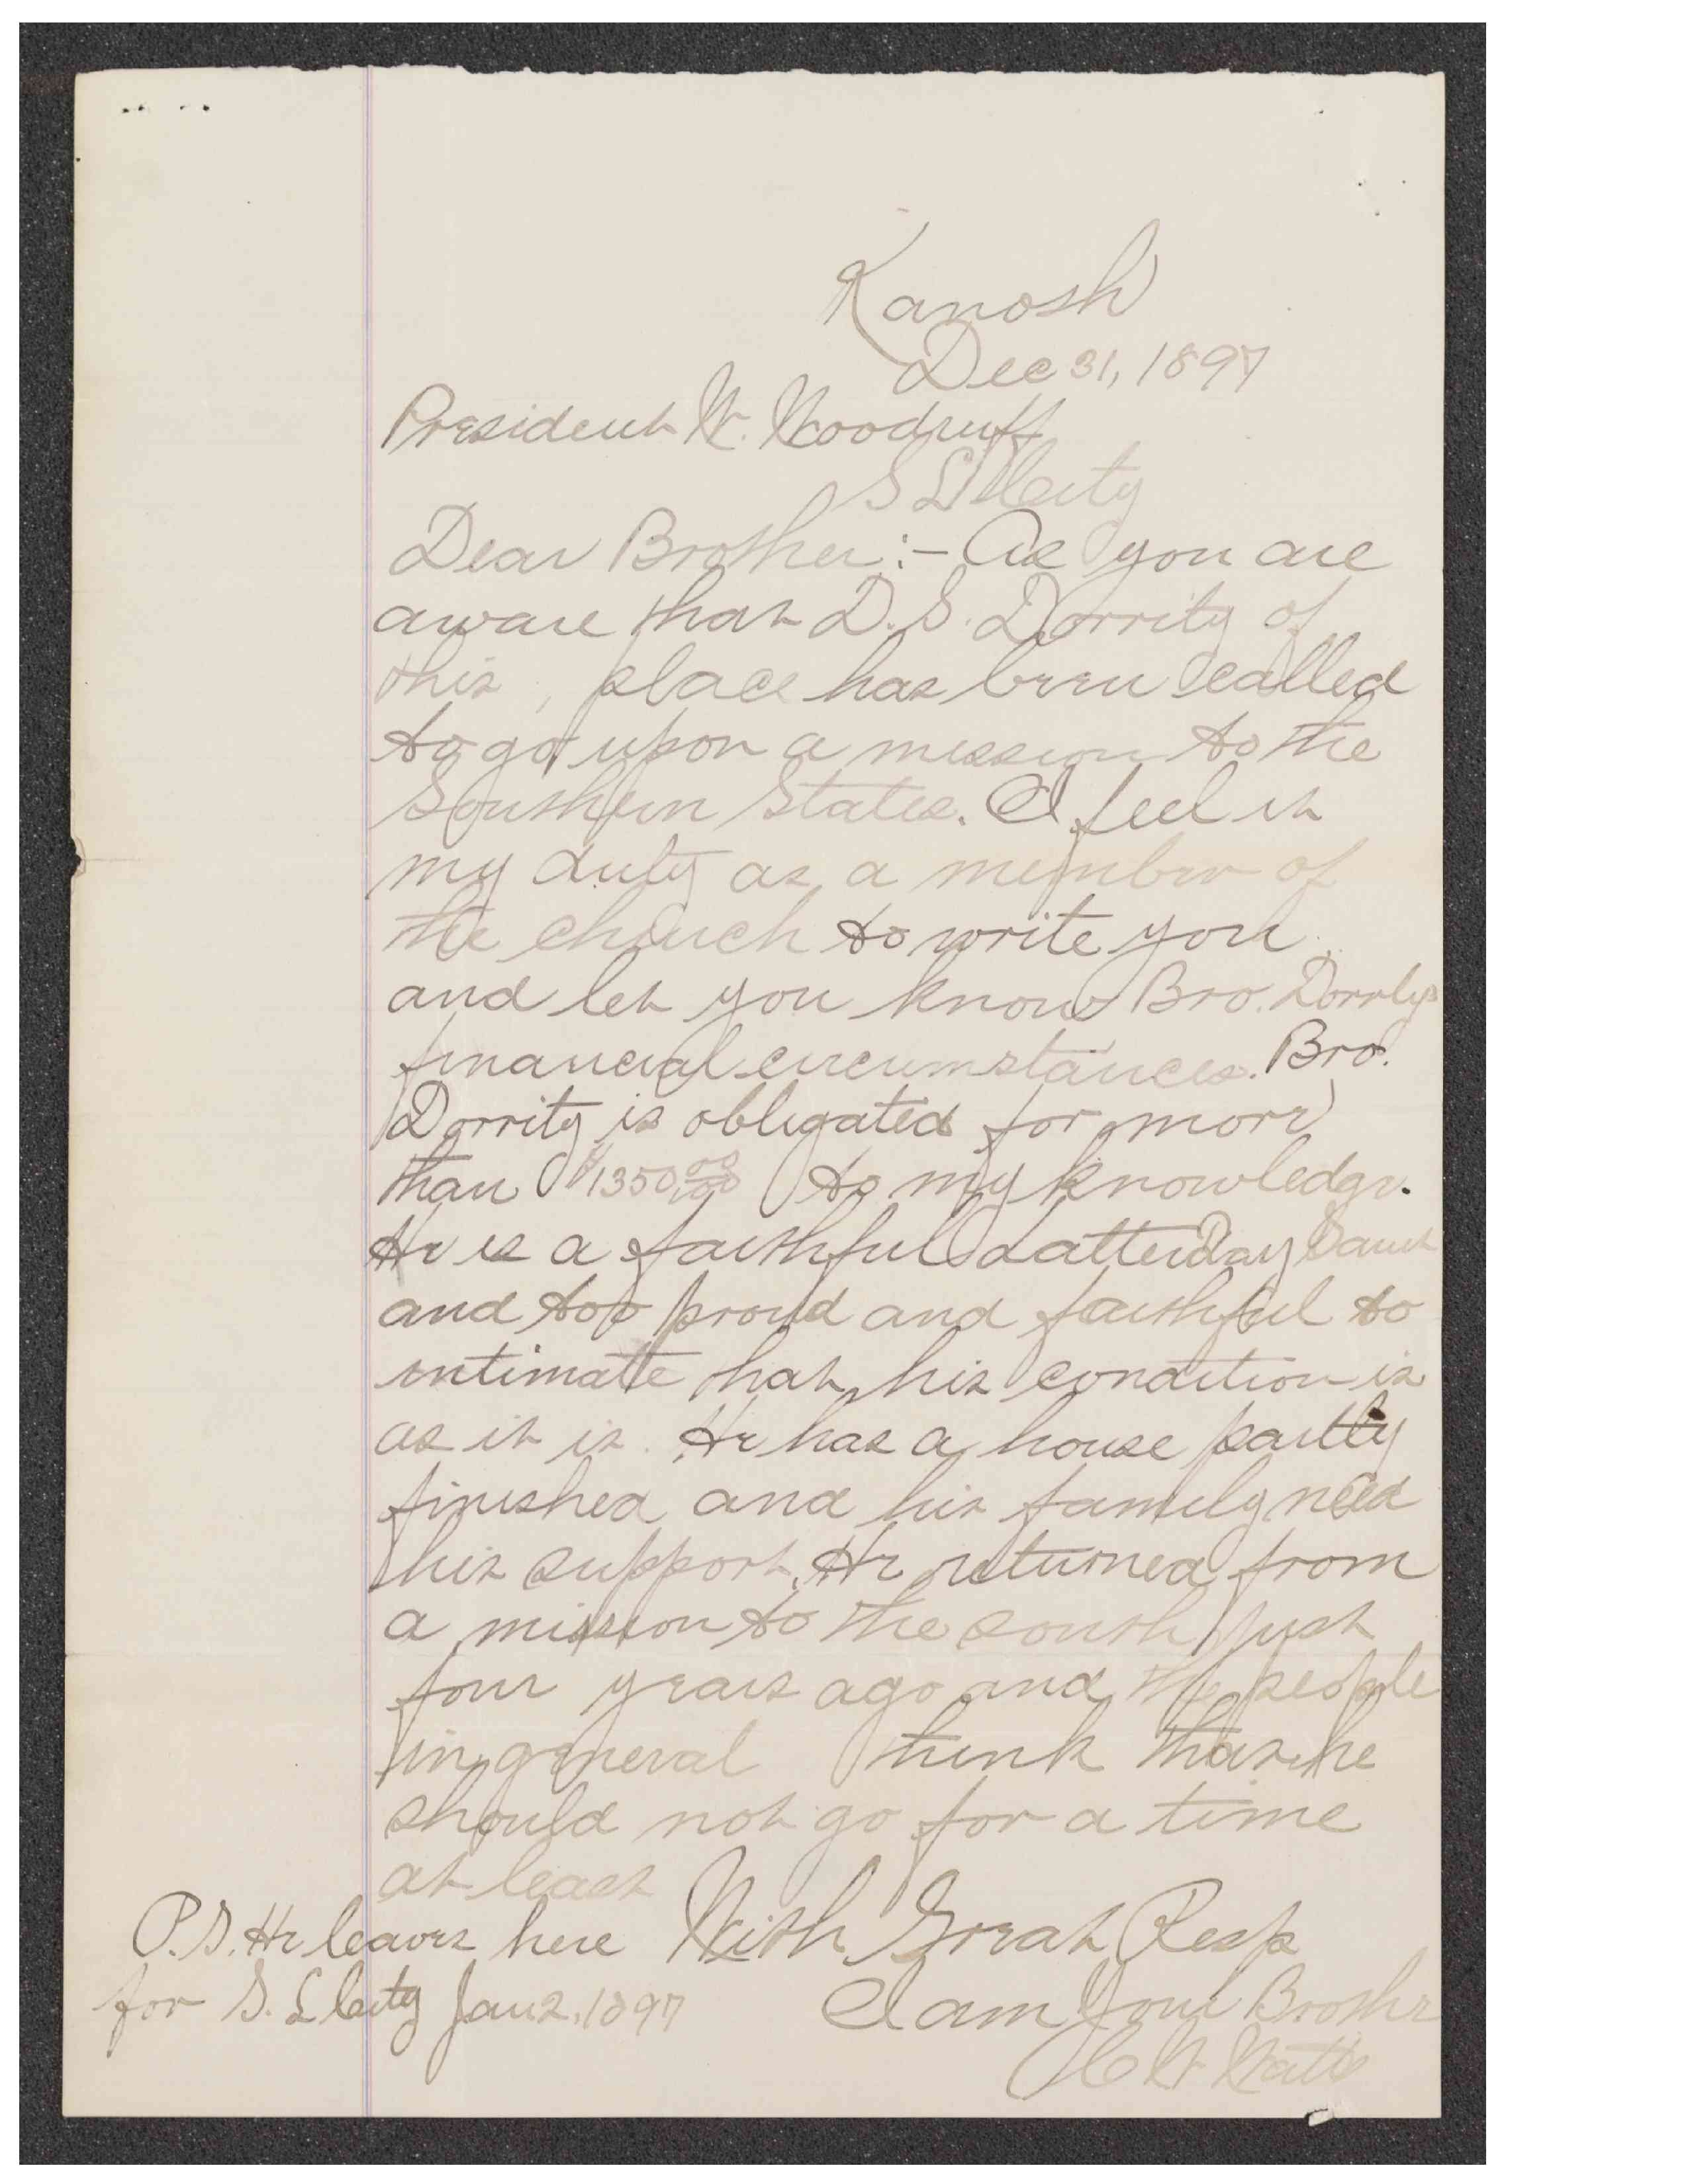 Kanosh
Dec 31, 1897
President W. Woodruff
S L City
Dear Brother:– As you are
aware that D. S. Dorrity of
this, place has been called
to go upon a mission to the
Southern States. I feel it
my duty as a member of
the church to write you
and let you know Bro. Dorritys
financial circumstances. Bro.
Dorrity is obligated for more
than $1350.00/100 to my knowledge.
He is a faithful Latter Day Saint
and too proud and faithful to
intimate that his condition is
as it is. He has a house partly
finished and his family need
his support. He returned from
a mission to the south just
four years ago and the people
in general think that he
should not go for a time
at least
With Great Resp
I am Your Brother
C W Watts
P.S. He leaves here
for S. L City Jan 2, 1897